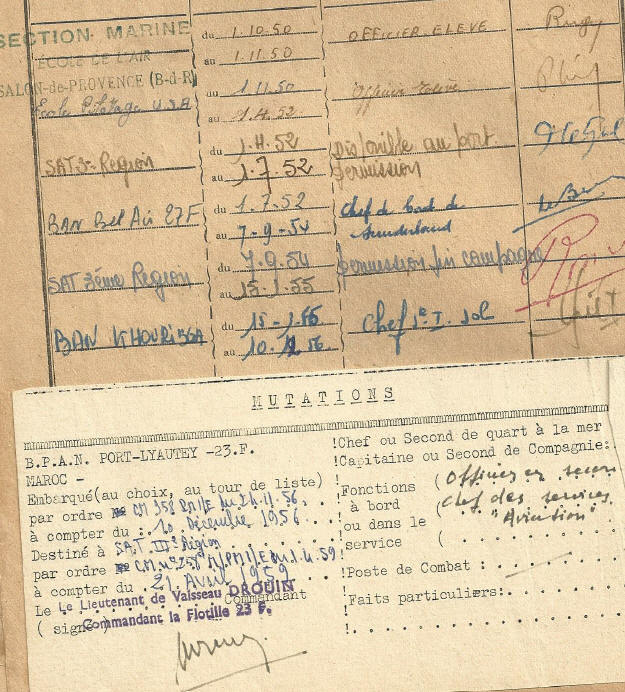 SECTION MARINE du 1.10.50 OFFICIER ELEVE
ÉCOLE DE L'AIR au 1.11.50
SALON-de-PROVENCE (B-d-R) du 1.11.50 Officier
École Pilotage U.S.A au 1.4.52
du 1.4.52 Disponible au port
SAT 3e Region au 1.7.52 permission
BAN Bel Air 27F du 1.7.52 chef de bord de
au 7-9-54 Sunderland
du 7.9.54 permission fin campagne
SAT 3ème Region au 15-1.55
du 15-1.55 Chef
BAN KHOURIBGA au 10.12.56
MUTATIONS
B.P.A.N. PORT-LYAUTEY -23.F.
MAROC -
Embarqué(au choix, au tour de liste)
par ordre CM 358 du 24.11.56.
à compter du : 10 Décembre 1956
Destiné à SAT. IIIe Région
par ordre
à compter du 21 Avril 1959
Le Le Lieutenant de Vaisseau DROUIN Commandant
( signé ) Commandant la Flotille 23 F.
!Chef ou Second de quart à la mer
!Capitaine ou Second de Compagnie:
!Fonctions ( Officier en second
! à bord ( chef des services
ou dans le ( "Aviation"
service (
!Poste de Combat :
!Faits particuliers:. . . . . . . .
!. . . . . . . . . . . . . . . . .